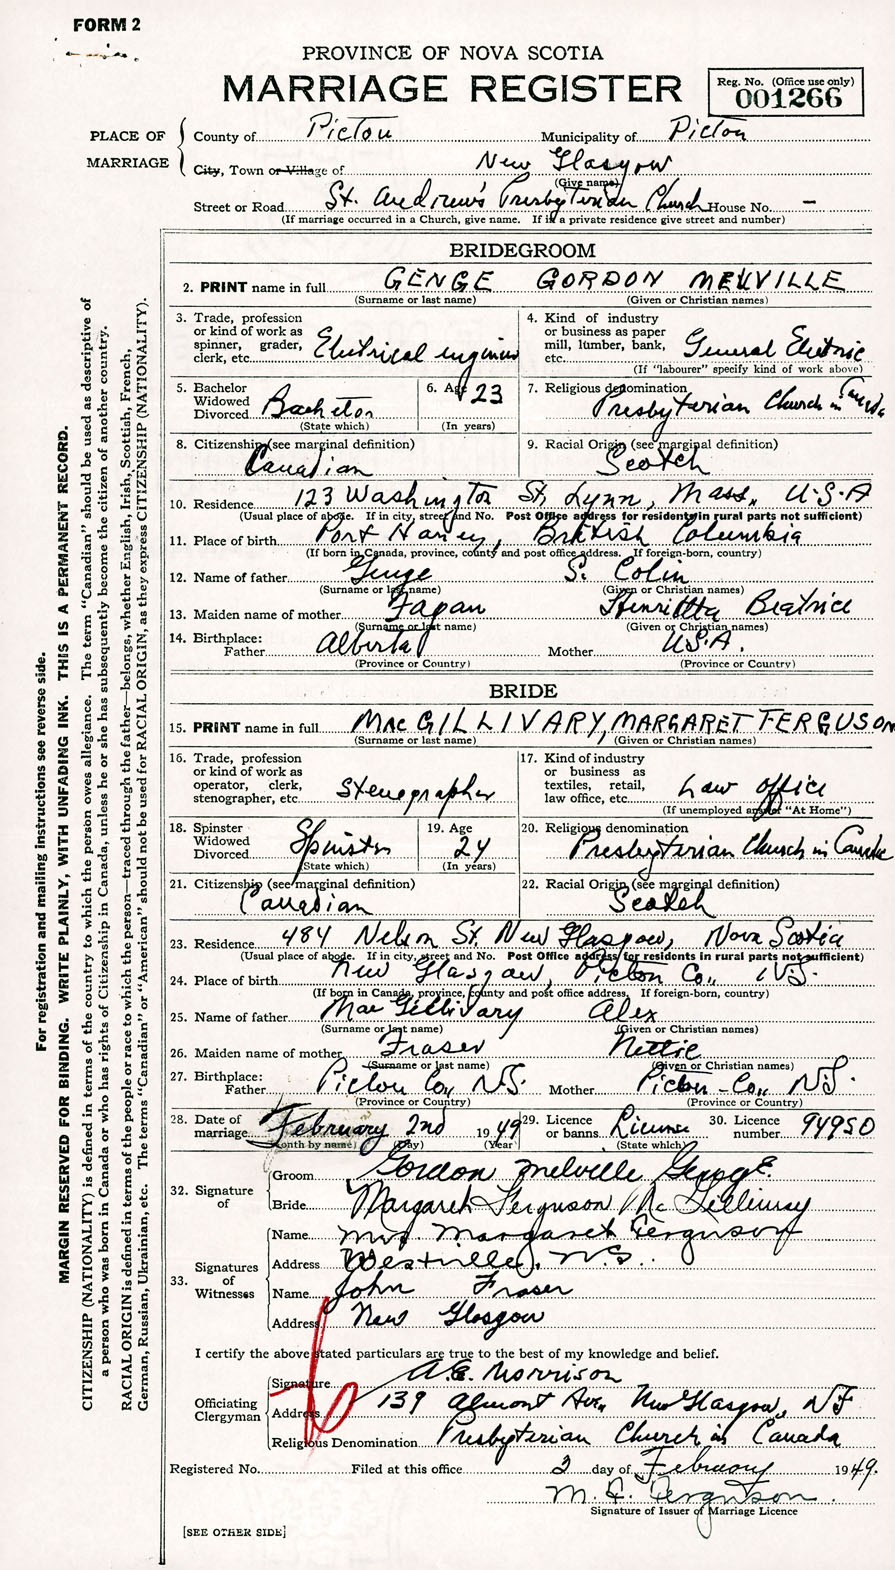 FORM 2
PROVINCE OF NOVA SCOTIA
MARRIAGE REGISTER
Reg. No. (Office use only)
001266
PLACE OF MARRIAGE
County of Pictou Municipality of Pictou
City, Town or Village of New Glasgow
(Give name)
Street or Road St. Andrew's Presbyterian Church House No. –
(If marriage occurred in a Church, give name. If in a private residence give street and number)
BRIDEGROOM
2. PRINT name in full GENGE GORDON MELVILLE
(Surname or last name) (Given or Christian names)
3. Trade, profession or kind of work as spinner, grader, clerk, etc. Electrical engineer
4. Kind of industry or business as paper mill, lumber, bank, etc. General Electric
(If "labourer" specify kind of work above)
5. Bachelor Widowed Divorced Bachelor
(State which)
6. Age 23
(In years)
7. Religious denomination Presbyterian Church in Canada
8. Citizenship (see marginal definition) Canadian
9. Racial Origin (see marginal definition) Scotch
10. Residence 123 Washington St, Lynn, Mass., U.S.A
(Usual place of abode. If in city, street and No. Post Office address for residents in rural parts not sufficient)
11. Place of birth Port Haney, British Columbia
(If born in Canada, province, county and post office address. If foreign-born, country)
12. Name of father Genge S. Colin
(Surname or last name) (Given or Christian names)
13. Maiden name of mother Fagan Henrietta Beatrice
(Surname or last name) (Given or Christian names)
14. Birthplace: Father Alberta Mother U.S.A.
(Province or Country) (Province or Country)
BRIDE
15. PRINT name in full MacGILLIVARY, MARGARET FERGUSON
(Surname or last name) (Given or Christian names)
16. Trade, profession or kind of work as operator, clerk, stenographer, etc Stenographer
17. Kind of industry or business as textiles, retail, law office, etc. Law office
(If unemployed answer "At Home")
18. Spinster Widowed Divorced Spinster
(State which)
19. Age 24
(In years)
20. Religious denomination Presbyterian Church in Canada
21. Citizenship (see marginal definition) Canadian
22. Racial Origin (see marginal definition) Scotch
23. Residence 484 Nelson St. New Glasgow, Nova Scotia
(Usual place of abode. If in city, street and No. Post Office address for residents in rural parts not sufficient)
24. Place of birth New Glasgow, Pictou Co., N.S.
(If born in Canada, province, county and post office address. If foreign-born, country)
25. Name of father MacGillivary Alex
(Surname or last name) (Given or Christian names)
26. Maiden name of mother Fraser Nettie
(Surname or last name) (Given or Christian names)
27. Birthplace: Father Pictou Co., N.S. Mother Pictou Co., N.S.
(Province or Country) (Province or Country)
28. Date of marriage February 2nd 1949
(Month by name) (Day) (Year)
29. Licence or banns License
(State which)
30. Licence number 94950
32. Signature of
Groom Gordon Melville Genge
Bride Margaret Ferguson McGillivray
33. Signatures of Witnesses
Name Mrs Margaret Ferguson
Address Westville, N.S.
Name John Fraser
Address New Glasgow
I certify the above stated particulars are true to the best of my knowledge and belief.
Officiating Clergyman
Signature A.E. Morrison
Address 139 Almont Ave., New Glasgow, NS
Religious Denomination Presbyterian Church in Canada
Registered No. Filed at this office 2 day of February 1949.
M. R. Ferguson
Signature of Issuer of Marriage Licence
[SEE OTHER SIDE]
For registration and mailing instructions see reverse side.
MARGIN RESERVED FOR BINDING. WRITE PLAINLY, WITH UNFADING INK. THIS IS A PERMANENT RECORD.
CITIZENSHIP (NATIONALITY) is defined in terms of the country to which the person owes allegiance. The term "Canadian" should be used as descriptive of
a person who was born in Canada or who has rights of Citizenship in Canada, unless he or she has subsequently become the citizen of another country.
RACIAL ORIGIN is defined in terms of the people or race to which the person—traced through the father—belongs, whether English, Irish, Scottish, French,
German, Russian, Ukrainian, etc. The terms "Canadian" or "American" should not be used for RACIAL ORIGIN, as they express CITIZENSHIP (NATIONALITY).